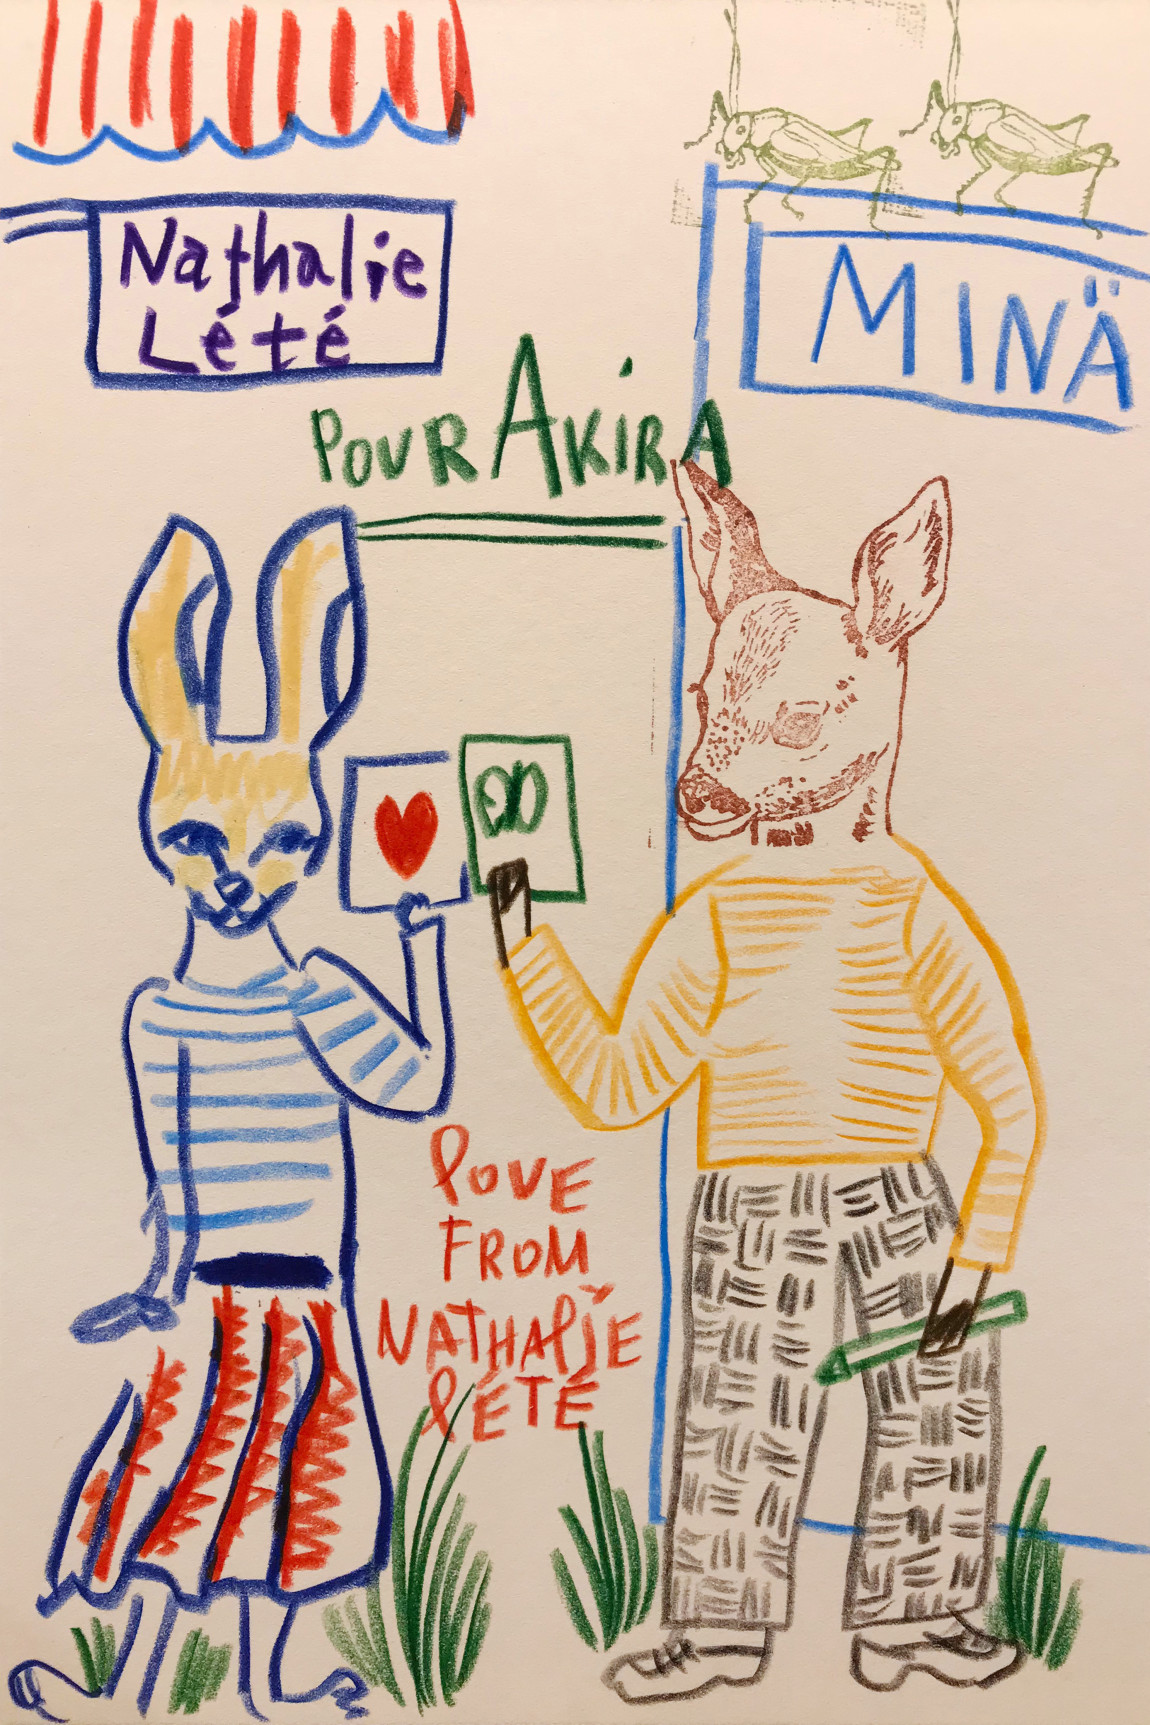 Nathalie
Lété
MINÄ
POUR AKIRA
LOVE
FROM
NATHALIE
LÉTÉ